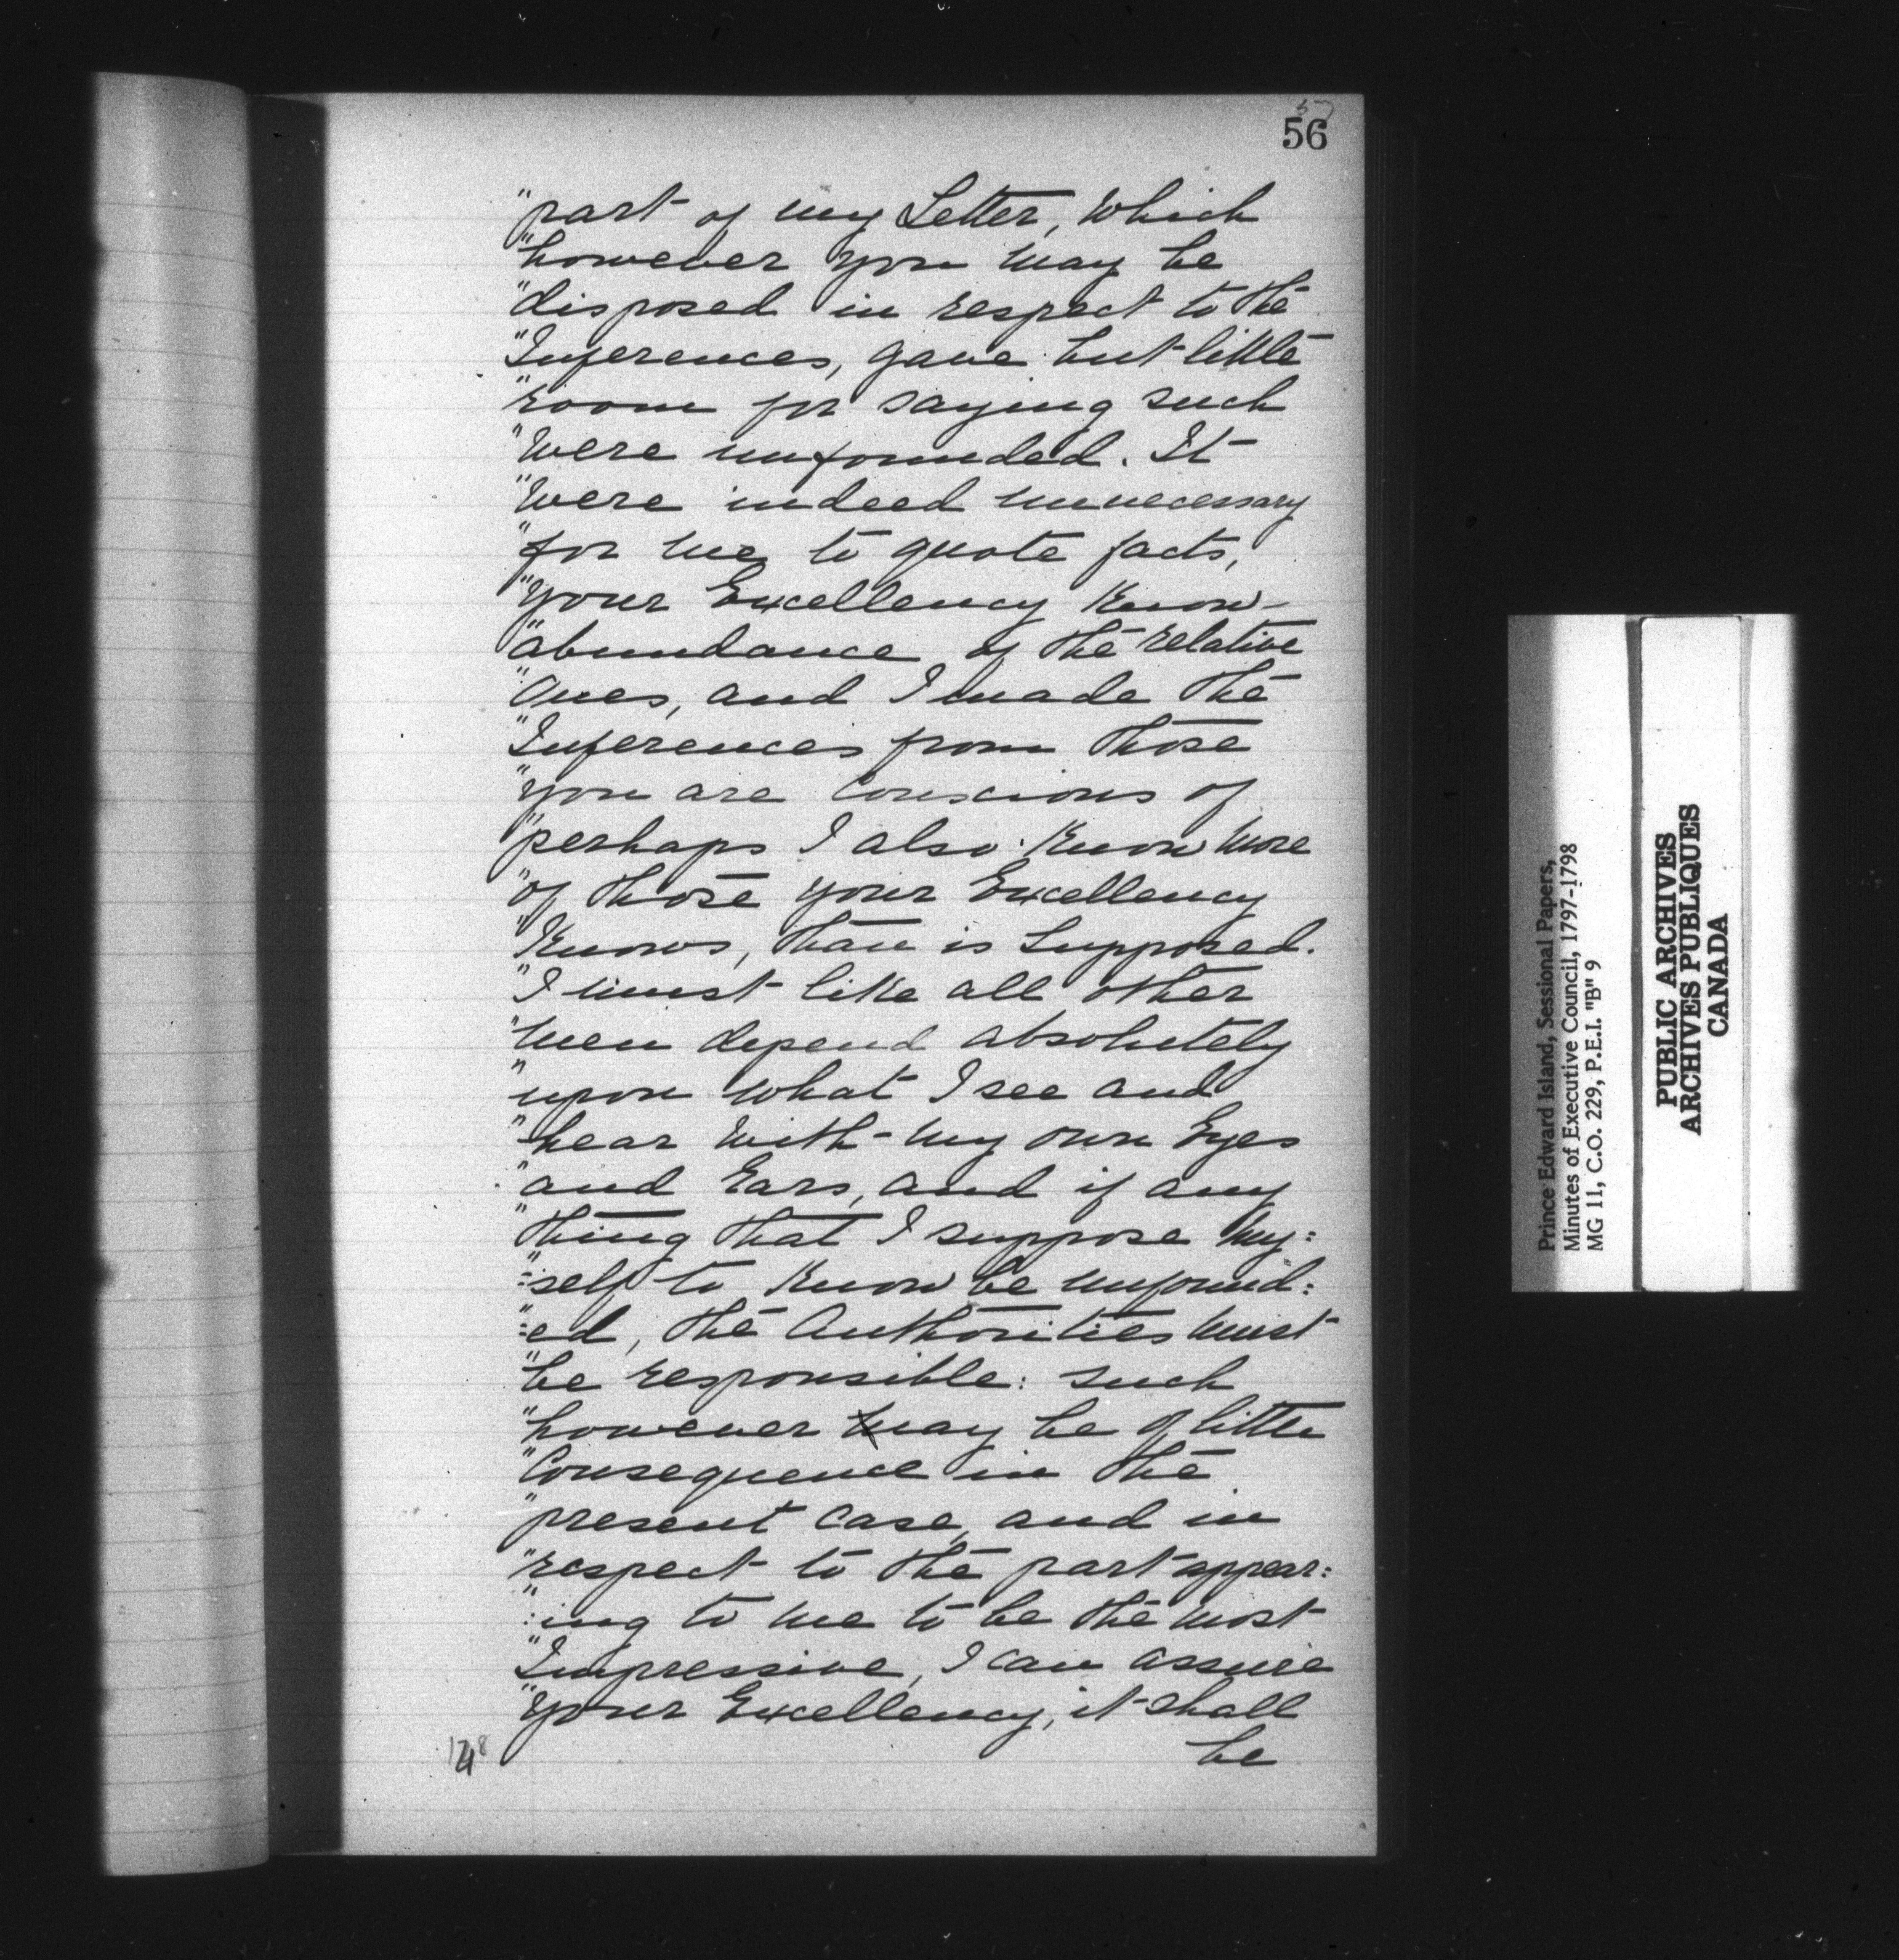 57
56
"part of my Letter, Which
"however you may be
"disposed in respect to the
"Inferences, gave but little
"room for saying such
"Were unfounded. It
"Were indeed unnecessary
"for me to quote facts,
"Your Excellency Know
"abundance of the relative
"Ones, and I made the
"Inferences from those
"you are Conscious of
"perhaps I also Know More
"of those your Excellency
"Knows, than is Supposed.
"I must like all other
"Men depend absolutely
"upon What I see and
"hear With my own Eyes
"and Ears, and if any
"thing that I suppose My:
":self to Know be unfound:
":ed, the Authorities Must
"be responsible: such
"however May be of little
"Consequence in the
"present Case, and in
"respect to the part appear:
":ing to Me to be the Most
"Impressive, I can assure
"Your Excellency, it shall
be
Prince Edward Island, Sessional Papers,
Minutes of Executive Council, 1797-1798
MG 11, C.O. 229, P.E.I. "B" 9
PUBLIC ARCHIVES
ARCHIVES PUBLIQUES
CANADA